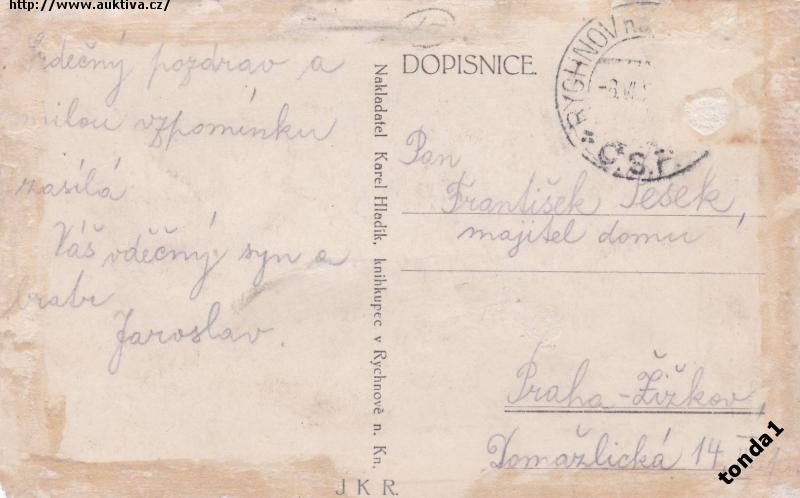 http://www.auktiva.cz/
Srdečný pozdrav a
milou vzpomínku
zasílá
Váš vděčný syn a
bratr
Jaroslav.
Nakladatel Karel Hladík, knihkupec v Rychnově n. Kn.
J K R.
DOPISNICE.
RYCHNOV
Č.S.R.
Pan
František Pešek,
majitel domu
Praha-Žižkov,
Domažlická 14.
tonda1